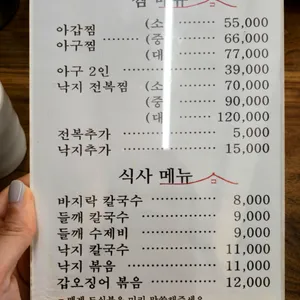 찜 메뉴
아갑찜 (소 55,000
아구찜 ········ (중 66,000
(대 77,000
아구 2인 ·············· 39,000
낙지 전복찜 (소 ········ 70,000
(중 ········ 90,000
(대 ········ 120,000
전복추가 ·············· 5,000
낙지추가 ·············· 15,000
식사 메뉴
바지락 칼국수 ············ 8,000
들깨 칼국수 ············ 9,000
들깨 수제비 ············ 9,000
낙지 칼국수 ············ 11,000
낙지 볶음 ············ 11,000
갑오징어 볶음 ············ 12,000